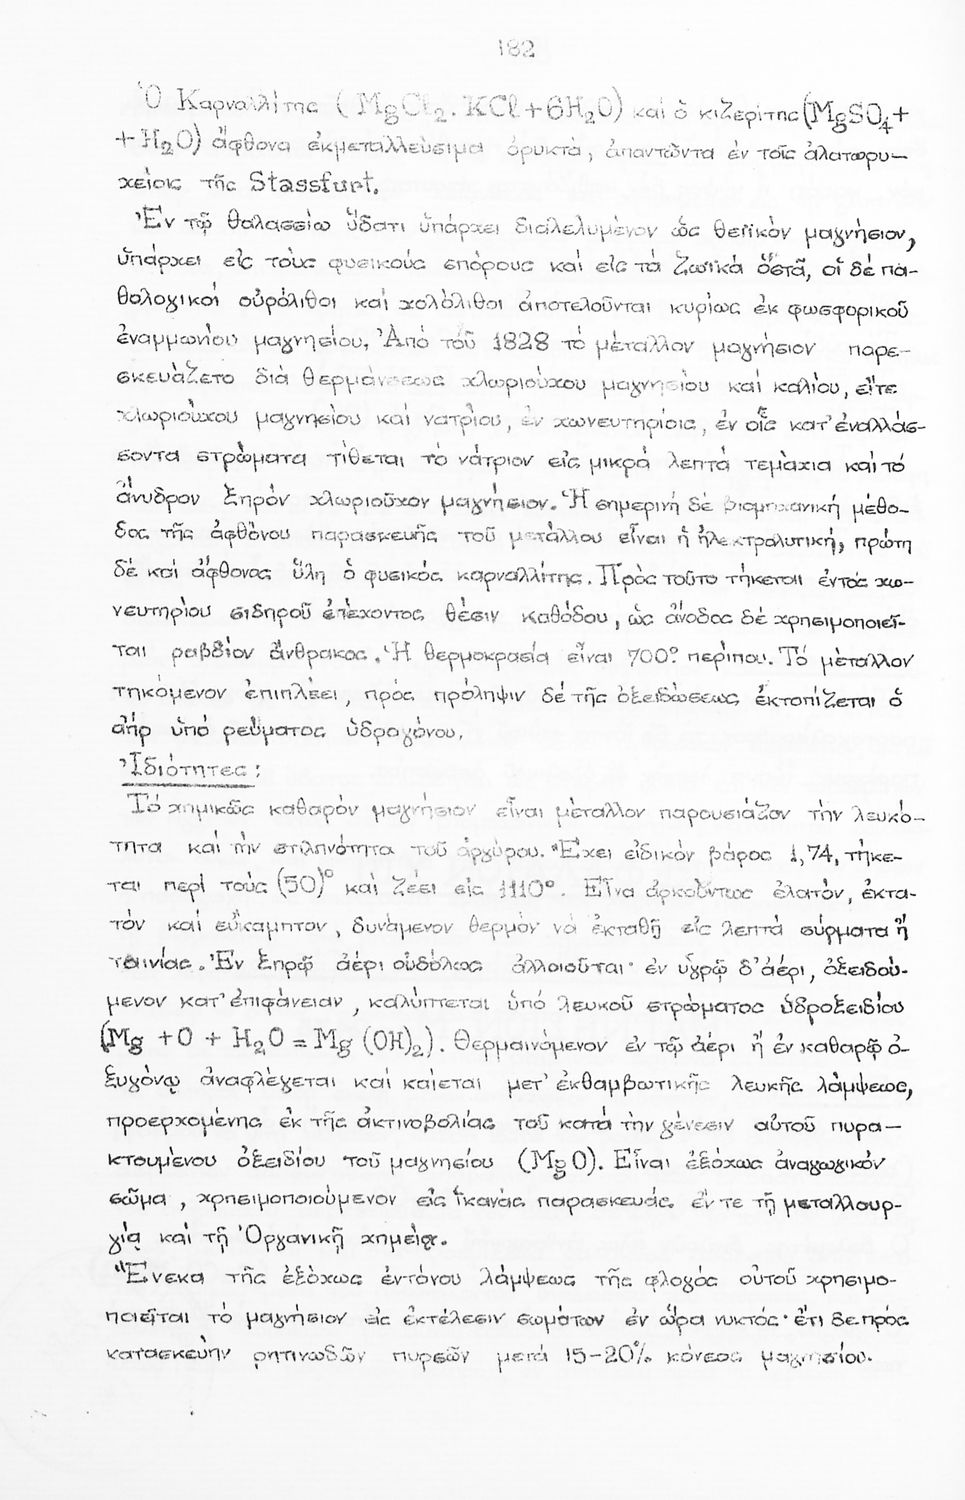 182
Ὁ Καρναλλίτης (MgCl₂.KCl+6H₂O) καί ὁ κιζερίτης (MgSO₄+
+H₂O) ἄφθονα ἐκμεταλλεύσιμα ὀρυκτά, ἀπαντῶντα ἐν τοῖς ἁλατωρυ-
χείοις τῆς Stassfurt.
Ἐν τῷ θαλασσίῳ ὕδατι ὑπάρχει διαλελυμένον ὡς θειϊκόν μαγνήσιον,
ὑπάρχει εἰς τούς φυσικούς σπόρους καί εἰς τά ζωϊκά ὀστᾶ, οἱ δέ πα-
θολογικοί οὐρόλιθοι καί χολόλιθοι ἀποτελοῦνται κυρίως ἐκ φωσφορικοῦ
ἐναμμωνίου μαγνησίου. Ἀπό τοῦ 1828 τό μέταλλον μαγνήσιον παρε-
σκευάζετο διά θερμάνσεως χλωριούχου μαγνησίου καί καλίου, εἴτε
χλωριούχου μαγνησίου καί νατρίου, ἐν χωνευτηρίοις, ἐν οἷς κατ' ἐναλλάσ-
σοντα στρώματα τίθεται τό νάτριον εἰς μικρά λεπτά τεμάχια καί τό
ἄνυδρον ξηρόν χλωριοῦχον μαγνήσιον. Ἡ σημερινή δέ βιομηχανική μέθο-
δος τῆς ἀφθόνου παρασκευῆς τοῦ μετάλλου εἶναι ἡ ἠλεκτρολυτική, πρώτη
δέ καί ἄφθονος ὕλη ὁ φυσικός καρναλλίτης. Πρός τοῦτο τήκεται ἐντός χω-
νευτηρίου σιδηροῦ ἐπέχοντος θέσιν καθόδου, ὡς ἄνοδος δέ χρησιμοποιεῖ-
ται ραβδίον ἄνθρακος. Ἡ θερμοκρασία εἶναι 700° περίπου. Τό μέταλλον
τηκόμενον ἐπιπλέει, πρός πρόληψιν δέ τῆς ὀξειδώσεως ἐκτοπίζεται ὁ
ἀήρ ὑπό ρεύματος ὑδρογόνου.
Ἰδιότητες:
Τό χημικῶς καθαρόν μαγνήσιον εἶναι μέταλλον παρουσιάζον τήν λευκό-
τητα καί τήν στιλπνότητα τοῦ ἀργύρου. Ἔχει εἰδικόν βάρος 1,74, τήκε-
ται περί τούς (50)° καί ζέει εἰς 1110°. Εἶνα ἀρκούντως ἐλατόν, ἐκτα-
τόν καί εὔκαμπτον, δυνάμενον θερμόν νά ἐκταθῇ εἰς λεπτά σύρματα ἤ
ταινίας. Ἐν ξηρῷ ἀέρι οὐδόλως ἀλλοιοῦται· ἐν ὑγρῷ δ' ἀέρι, ὀξειδού-
μενον κατ' ἐπιφάνειαν, καλύπτεται ὑπό λευκοῦ στρώματος ὑδροξειδίου
(Mg +O + H₂O = Mg (OH)₂). Θερμαινόμενον ἐν τῷ ἀέρι ἤ ἐν καθαρῷ ὀ-
ξυγόνῳ ἀναφλέγεται καί καίεται μετ' ἐκθαμβωτικῆς λευκῆς λάμψεως,
προερχομένης ἐκ τῆς ἀκτινοβολίας τοῦ κατά τήν γένεσιν αὐτοῦ πυρα-
κτουμένου ὀξειδίου τοῦ μαγνησίου (MgO). Εἶναι ἐξόχως ἀναγωγικόν
σῶμα, χρησιμοποιούμενον εἰς ἱκανάς παρασκευάς ἔν τε τῇ μεταλλουρ-
γίᾳ καί τῇ Ὀργανικῇ χημείᾳ.
Ἕνεκα τῆς ἐξόχως ἐντόνου λάμψεως τῆς φλογός αὐτοῦ χρησιμο-
ποιεῖται τό μαγνήσιον εἰς ἐκτέλεσιν σωμάτων ἐν ὥρα νυκτός· ἔτι δε πρός
κατασκευήν ρητινωδῶν πυρσῶν μετά 15-20% κόνεος μαγνησίου.